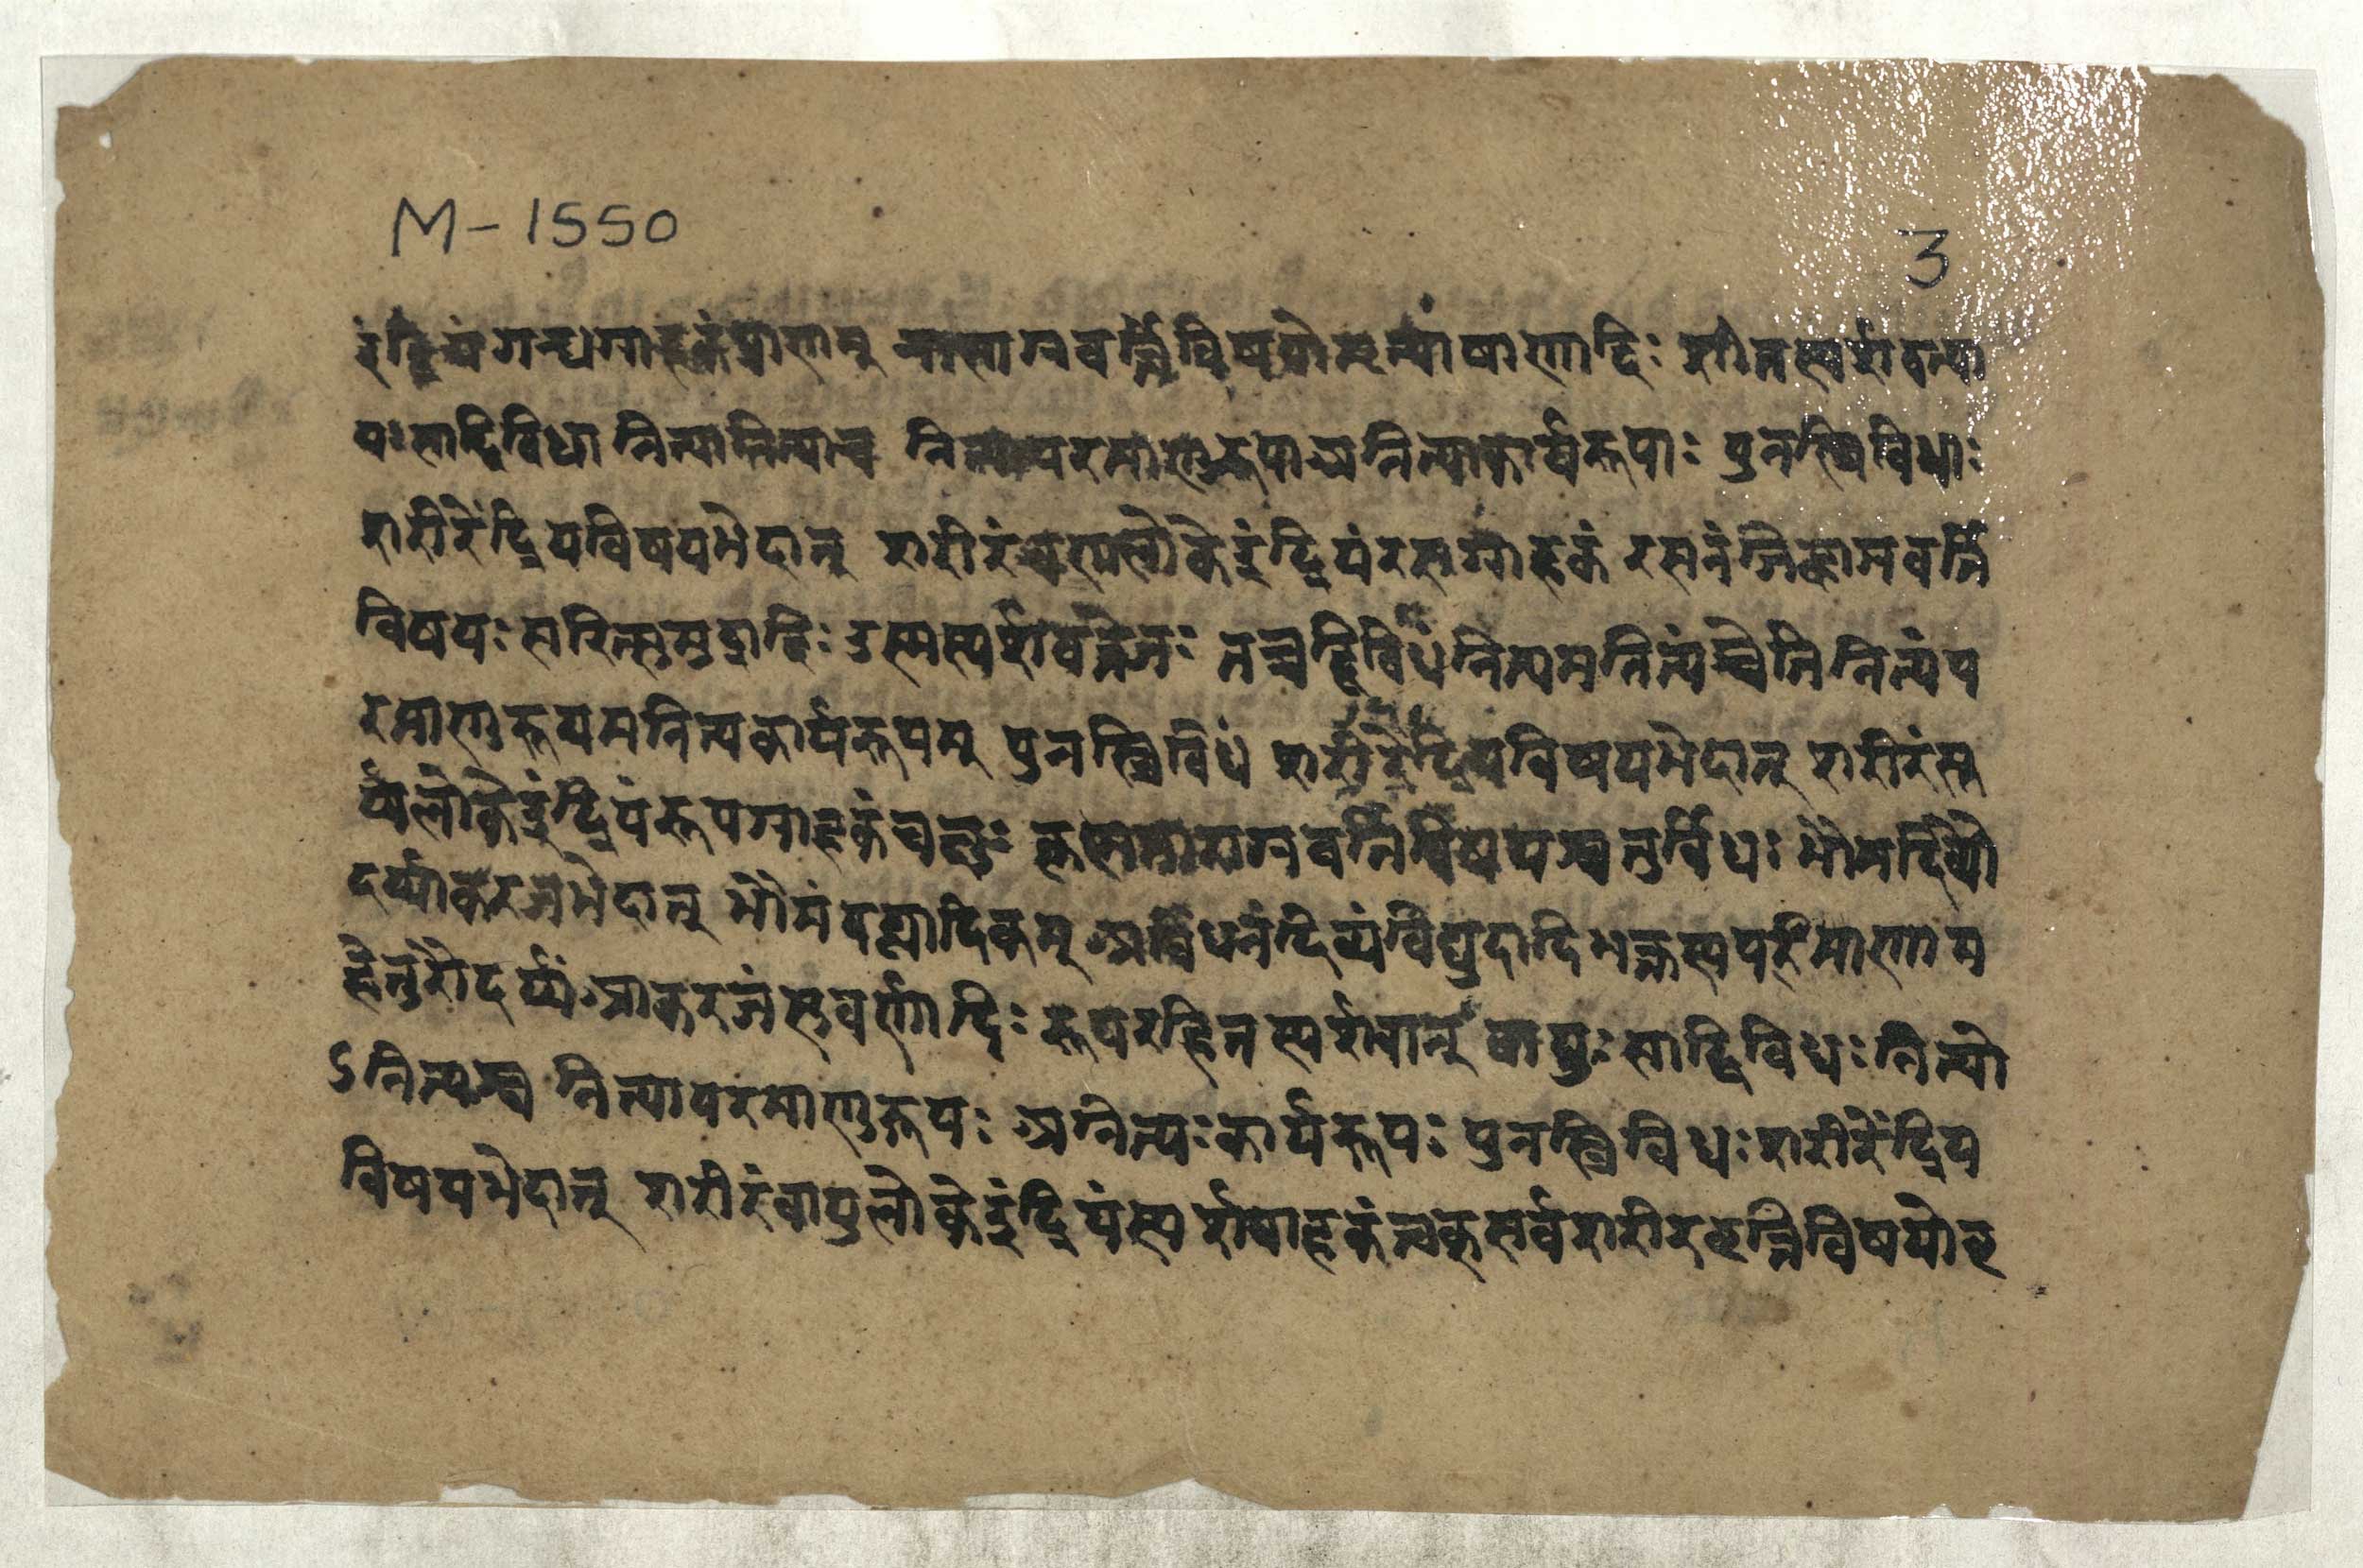 M-1550
3
इंद्रियं गन्धग्राहकं घ्राणम् नासाग्रवर्त्ति विषयो मृत्पाषाणादिः शीतस्पर्शवत्या
पः सा द्विविधा नित्यानित्याच नित्यापरमाणुरूपा अनित्याकार्यरूपाः पुनस्त्रिविधाः
शरीरेंद्रियविषयभेदात् शरीरं वरुणलोके इंद्रियं रसग्राहकं रसनं जिह्वाग्रवर्त्ति
विषयः सरित्समुद्रादिः उस्मस्पर्शवत्तेजः तच्चद्विविधं नित्यमनित्यंश्चेति नित्यंप
रमाणुरूपमनित्यकार्यरूपम् पुनस्त्रिविधं शरीरेंद्रियविषयभेदात् शरीरंसू
र्य्यलोके इंद्रियं रूपग्राहकं चक्षुः कृष्णताराग्रवर्त्ति विषयश्चतुर्विधः भौमदिव्यौ
दर्य्याकरजभेदात् भौमं वह्न्यादिकम् अविंधनं दिव्यं विद्युदादि भक्तस्य परिमाणाम
हेतुरौदर्य्यं आकरजं सुवर्णादिः रूपरहितस्पर्शवान् वायुः सा द्विविधः नित्यो
ऽनित्यश्च नित्यापरमाणुरूपः अनित्यः कार्यरूपः पुनस्त्रिविधः शरीरेंद्रिय
विषयभेदात् शरीरं वायुलोके इंद्रियं स्पर्शग्राहकं त्वक् सर्वशरीरवृत्तिविषयो वृ